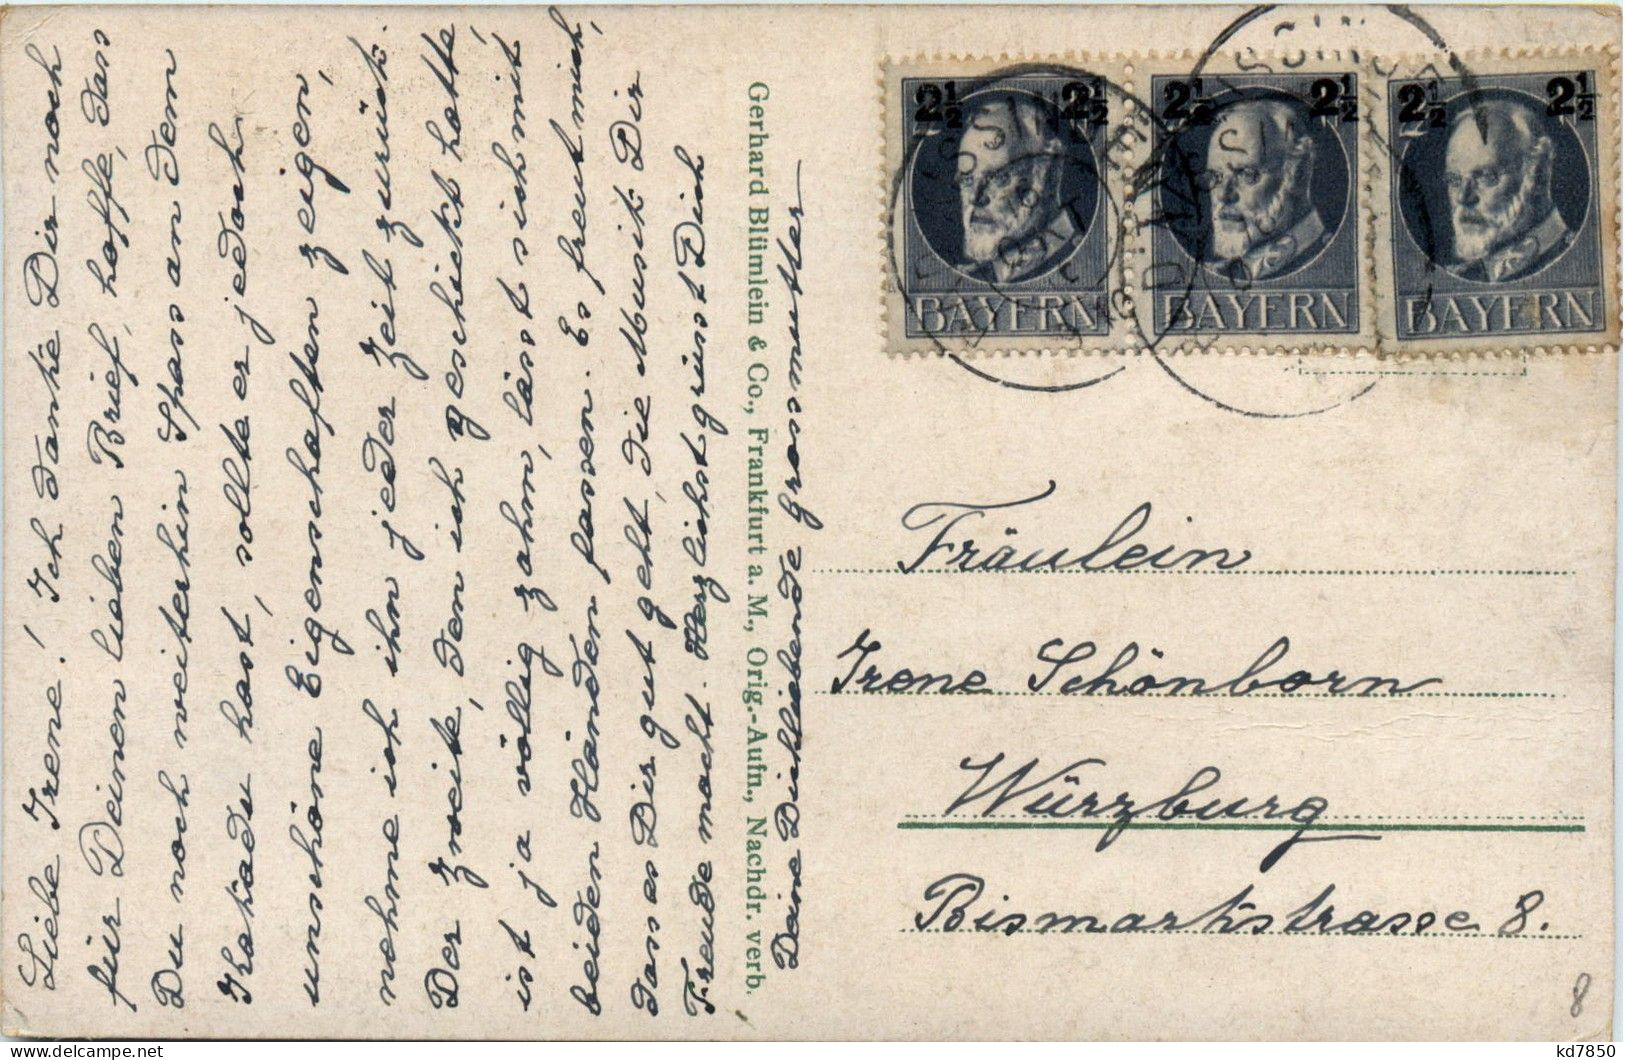 Liebe Irene! Ich danke Dir noch
für Deinen lieben Brief, hoffe, dass
Du noch weiterhin Spass an dem
Kakadu hast, sollte er jedoch
unschöne Eigenschaften zeigen,
nehme ich ihn jeder Zeit zurück.
Der zweite, den ich geschickt hatte,
ist ja völlig zahm, lässt sich mit
beiden Händen fassen. Es freut mich,
dass es Dir gut geht, die Musik Dir
Freude macht. Herzlichst grüsst Dich
Deine Dichliebende Grossmutter
Gerhard Blümlein & Co., Frankfurt a. M., Orig.-Aufn., Nachdr. verb.
2½ 2½ 2½ 2½ 2½ 2½
BAYERN BAYERN BAYERN
Fräulein
Irene Schönborn
Würzburg
Bismarkstrasse 8.
8
kd7850